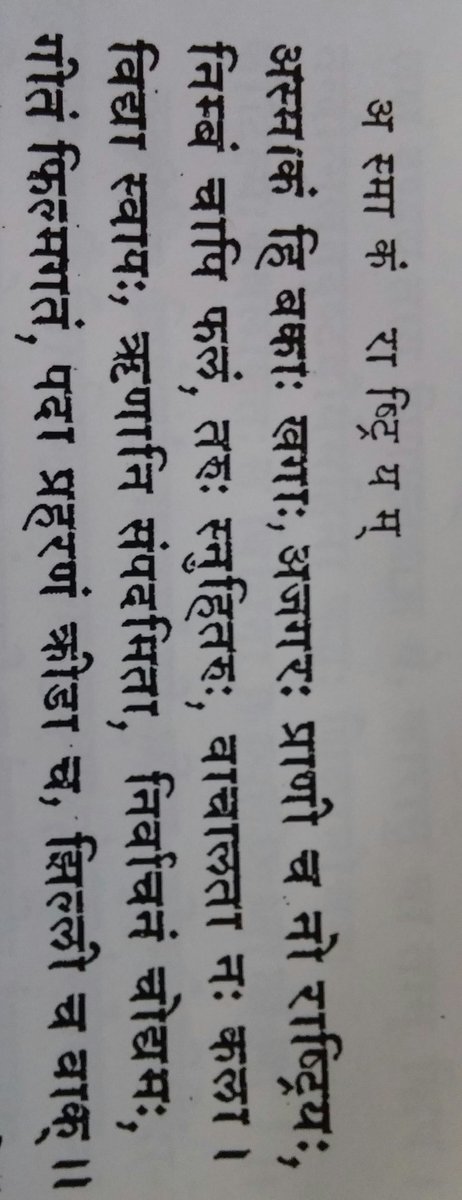 अस्माकं राष्ट्रियम्
अस्माकं हि बकाः खगाः, अजगरः प्राणी च नो राष्ट्रियः,
निम्बं चापि फलं, तरुः स्नुहितरुः, वाचालता नः कला ।
विद्या स्वापः, ऋणानि संपदमिता, निर्वाचनं चोद्यमः,
गीतं फिल्मगतं, पदा प्रहरणं क्रीडा च, झिल्ली च वाक् ॥